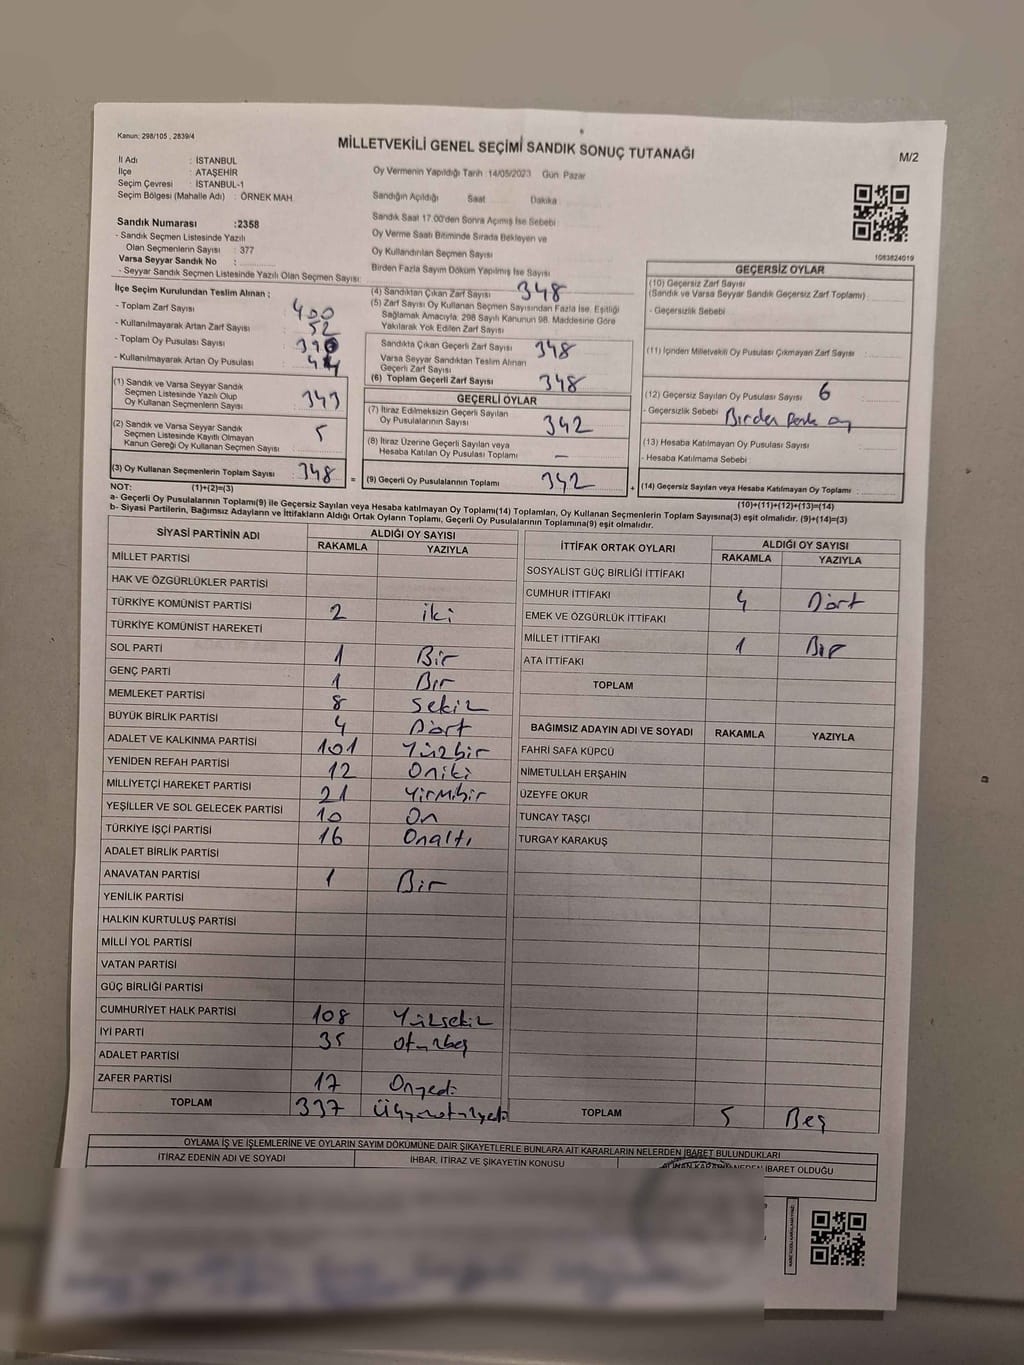 Kanun: 298/105 , 2839/4
MİLLETVEKİLİ GENEL SEÇİMİ SANDIK SONUÇ TUTANAĞI
M/2
İl Adı : İSTANBUL
İlçe : ATAŞEHİR
Seçim Çevresi : İSTANBUL-1
Seçim Bölgesi (Mahalle Adı) : ÖRNEK MAH
Oy Vermenin Yapıldığı Tarih :14/05/2023 Gün :Pazar
Sandığın Açıldığı Saat Dakika
Sandık Saat 17.00'den Sonra Açılmış İse Sebebi
Oy Verme Saati Bitiminde Sırada Bekleyen ve
Oy Kullandırılan Seçmen Sayısı
Birden Fazla Sayım Döküm Yapılmış İse Sayısı
Sandık Numarası :2358
- Sandık Seçmen Listesinde Yazılı
Olan Seçmenlerin Sayısı : 377
Varsa Seyyar Sandık No :
- Seyyar Sandık Seçmen Listesinde Yazılı Olan Seçmen Sayısı:
1083824019
İlçe Seçim Kurulundan Teslim Alınan ;
- Toplam Zarf Sayısı 400
- Kullanılmayarak Artan Zarf Sayısı : 52
- Toplam Oy Pusulası Sayısı
- Kullanılmayarak Artan Oy Pusulası :
(1) Sandık ve Varsa Seyyar Sandık
Seçmen Listesinde Yazılı Olup
Oy Kullanan Seçmenlerin Sayısı 343
(2) Sandık ve Varsa Seyyar Sandık
Seçmen Listesinde Kayıtlı Olmayan
Kanun Gereği Oy Kullanan Seçmen Sayısı : 5
(3) Oy Kullanan Seçmenlerin Toplam Sayısı : 348
(4) Sandıktan Çıkan Zarf Sayısı 348
(5) Zarf Sayısı Oy Kullanan Seçmen Sayısından Fazla İse, Eşitliği
Sağlamak Amacıyla; 298 Sayılı Kanunun 98. Maddesine Göre
Yakılarak Yok Edilen Zarf Sayısı
Sandıkta Çıkan Geçerli Zarf Sayısı : 348
Varsa Seyyar Sandıktan Teslim Alınan
Geçerli Zarf Sayısı
(6) Toplam Geçerli Zarf Sayısı : 348
GEÇERLİ OYLAR
(7) İtiraz Edilmeksizin Geçerli Sayılan
Oy Pusulalarının Sayısı : 342
(8) İtiraz Üzerine Geçerli Sayılan veya
Hesaba Katılan Oy Pusulası Toplamı : –
= (9) Geçerli Oy Pusulalarının Toplamı 342 +
GEÇERSİZ OYLAR
(10) Geçersiz Zarf Sayısı
(Sandık ve Varsa Seyyar Sandık Geçersiz Zarf Toplamı)
- Geçersizlik Sebebi :
(11) İçinden Milletvekili Oy Pusulası Çıkmayan Zarf Sayısı :
(12) Geçersiz Sayılan Oy Pusulası Sayısı : 6
- Geçersizlik Sebebi Birden oy
(13) Hesaba Katılmayan Oy Pusulası Sayısı :
- Hesaba Katılmama Sebebi :
(14) Geçersiz Sayılan veya Hesaba Katılmayan Oy Toplamı :
NOT: (1)+(2)=(3)
(10)+(11)+(12)+(13)=(14)
a- Geçerli Oy Pusulaları Toplamı(9) ile Geçersiz Sayılan veya Hesaba katılmayan Oy Toplamı(14) Toplamları, Oy Kullanan Seçmenlerin Toplam Sayısına(3) eşit olmalıdır. (9)+(14)=(3)
b- Siyasi Partilerin, Bağımsız Adayların ve İttifakların Aldığı Ortak Oyların Toplamı, Geçerli Oy Pusulalarının Toplamına(9) eşit olmalıdır.
SİYASİ PARTİNİN ADI ALDIĞI OY SAYISI
RAKAMLA YAZIYLA
MİLLET PARTİSİ
HAK VE ÖZGÜRLÜKLER PARTİSİ
TÜRKİYE KOMÜNİST PARTİSİ 2 iki
TÜRKİYE KOMÜNİST HAREKETİ
SOL PARTİ 1 Bir
GENÇ PARTİ 1 Bir
MEMLEKET PARTİSİ 8 Sekiz
BÜYÜK BİRLİK PARTİSİ 4 Dört
ADALET VE KALKINMA PARTİSİ 101 Yüzbir
YENİDEN REFAH PARTİSİ 12 Oniki
MİLLİYETÇİ HAREKET PARTİSİ 21 Yirmibir
YEŞİLLER VE SOL GELECEK PARTİSİ 10 On
TÜRKİYE İŞÇİ PARTİSİ 16 Onaltı
ADALET BİRLİK PARTİSİ
ANAVATAN PARTİSİ 1 Bir
YENİLİK PARTİSİ
HALKIN KURTULUŞ PARTİSİ
MİLLİ YOL PARTİSİ
VATAN PARTİSİ
GÜÇ BİRLİĞİ PARTİSİ
CUMHURİYET HALK PARTİSİ 108 Yüzsekiz
İYİ PARTİ 35 Otuzbeş
ADALET PARTİSİ
ZAFER PARTİSİ 17 Onyedi
TOPLAM 337
İTTİFAK ORTAK OYLARI ALDIĞI OY SAYISI
RAKAMLA YAZIYLA
SOSYALİST GÜÇ BİRLİĞİ İTTİFAKI
CUMHUR İTTİFAKI 4 Dört
EMEK VE ÖZGÜRLÜK İTTİFAKI
MİLLET İTTİFAKI 1 Bir
ATA İTTİFAKI
TOPLAM
BAĞIMSIZ ADAYIN ADI VE SOYADI RAKAMLA YAZIYLA
FAHRİ SAFA KÜPCÜ
NİMETULLAH ERŞAHİN
ÜZEYFE OKUR
TUNCAY TAŞÇI
TURGAY KARAKUŞ
TOPLAM 5 Beş
OYLAMA İŞ VE İŞLEMLERİNE VE OYLARIN SAYIM DÖKÜMÜNE DAİR ŞİKAYETLERLE BUNLARA AİT KARARLARIN NELERDEN İBARET BULUNDUKLARI
İTİRAZ EDENİN ADI VE SOYADI İHBAR, İTİRAZ VE ŞİKAYETİN KONUSU ALINAN KARARIN NEDEN İBARET OLDUĞU